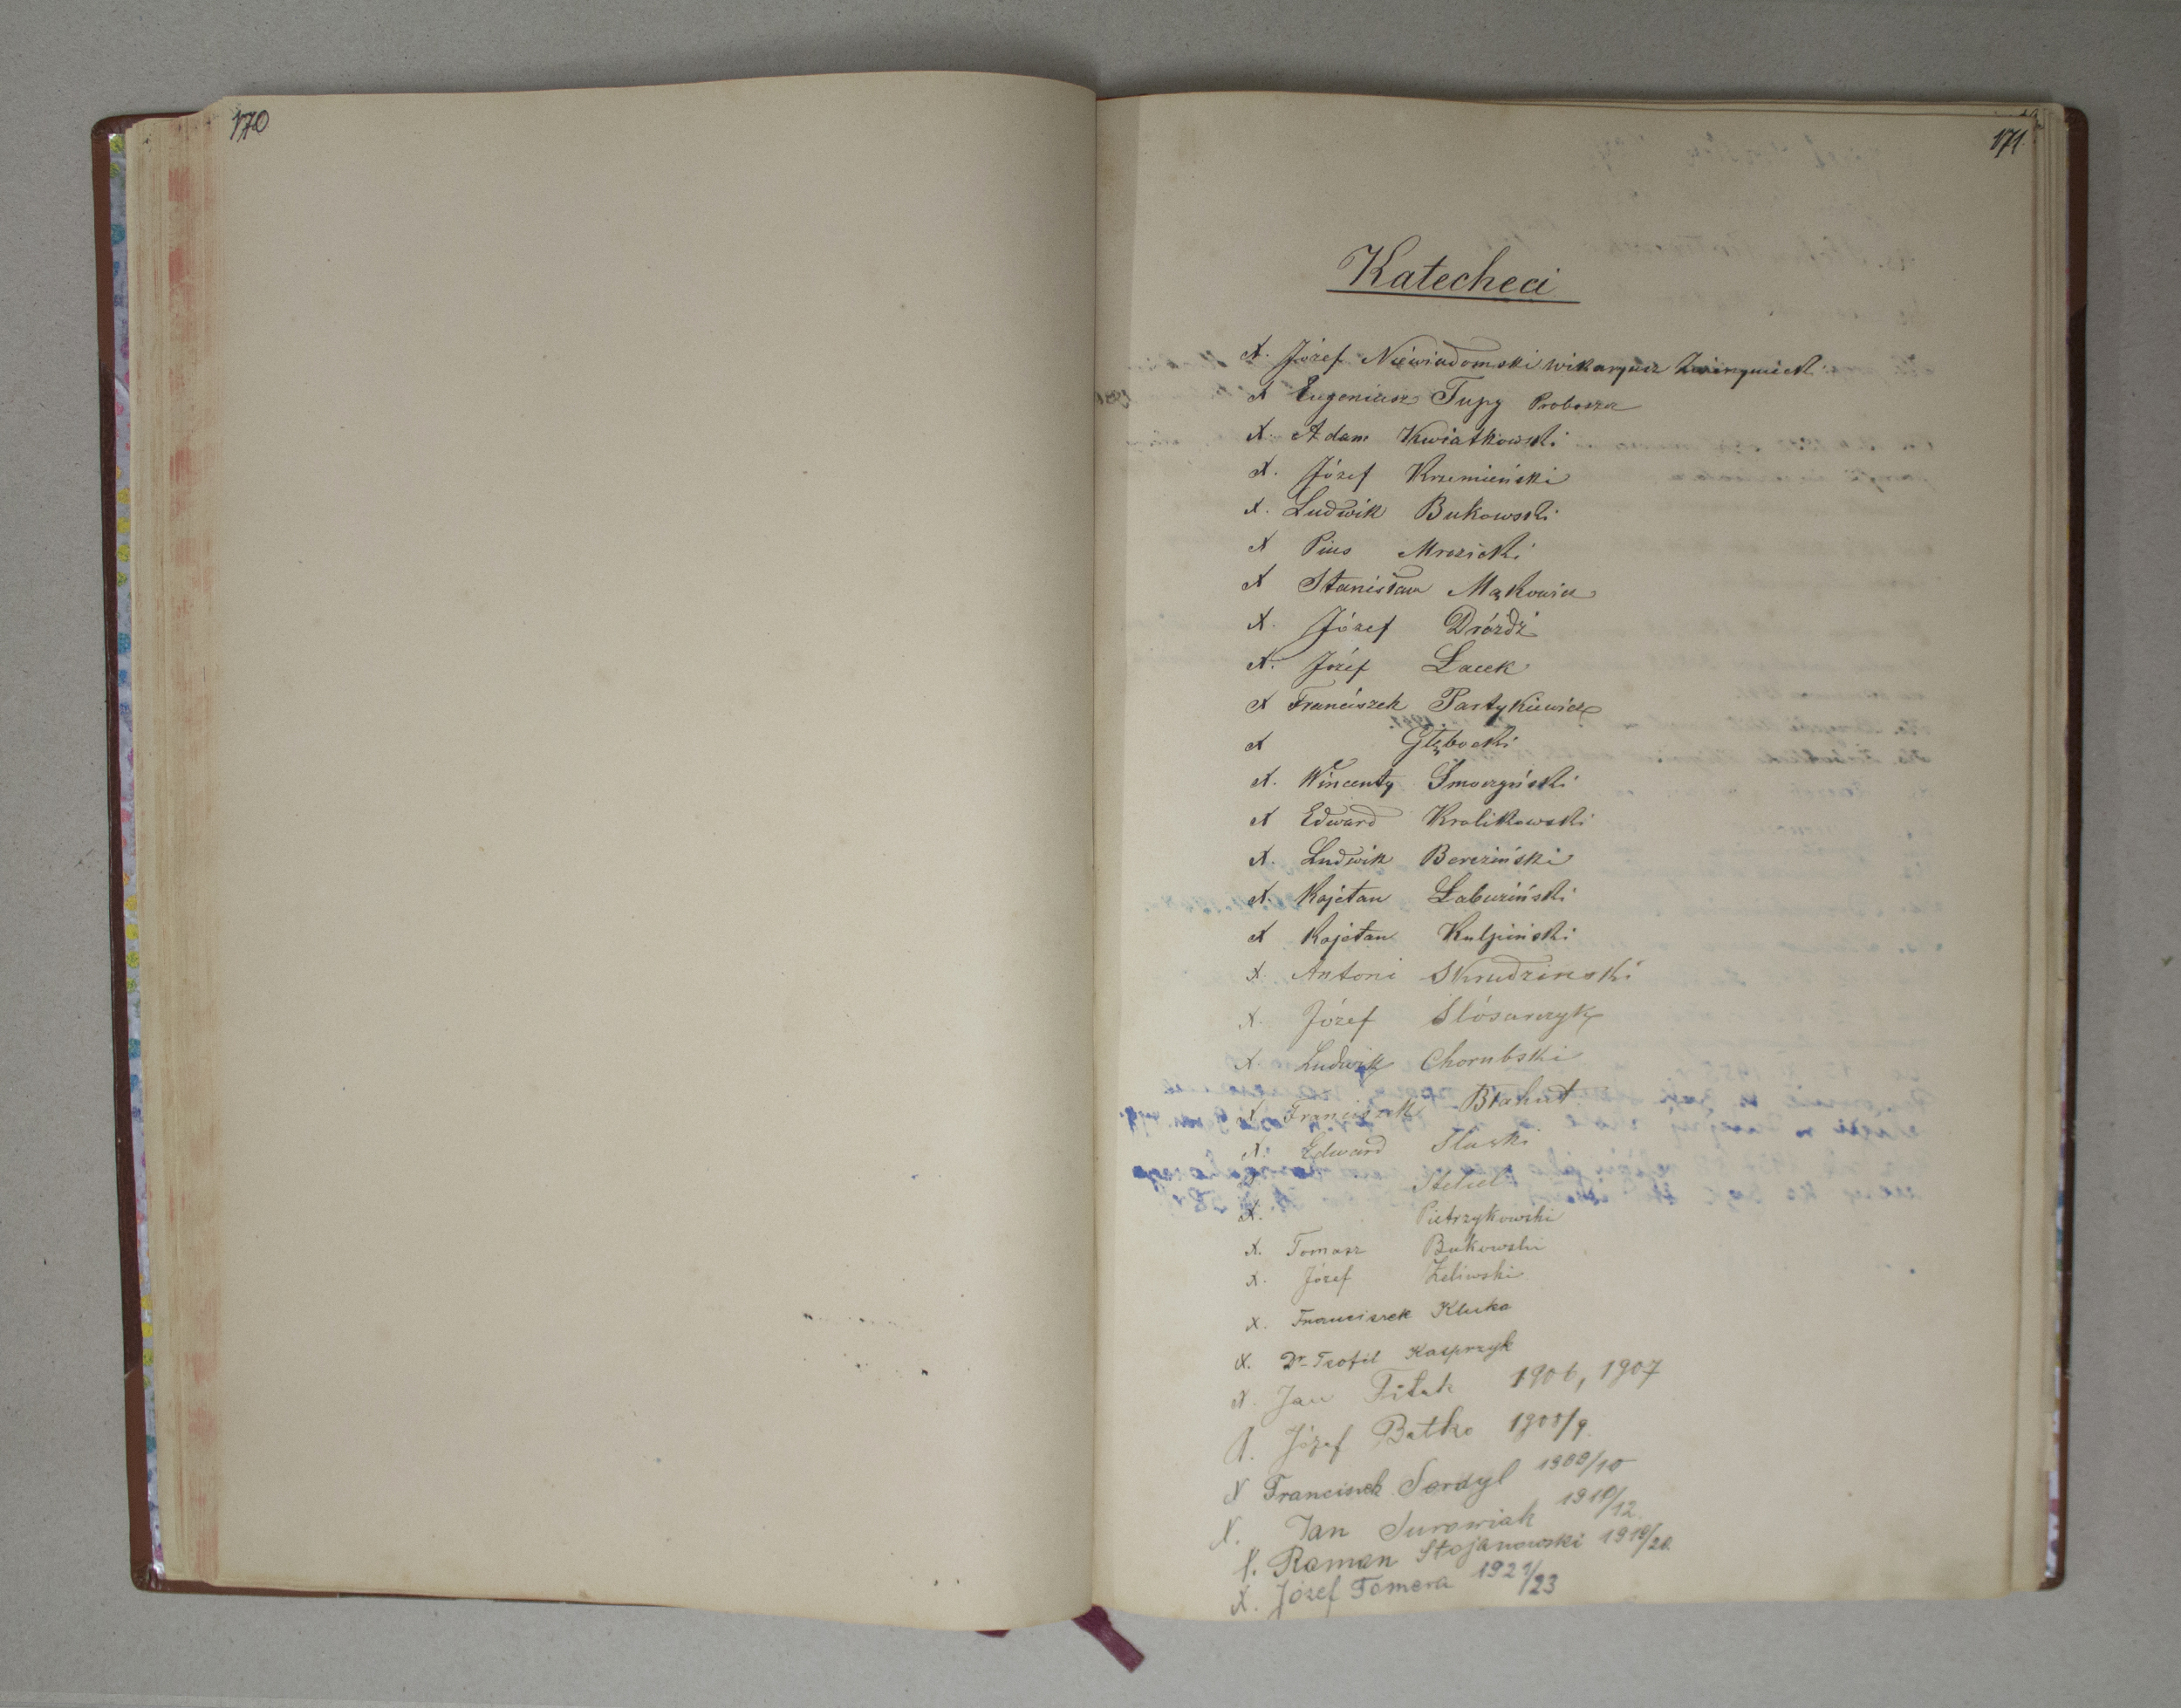 170
171.
Katecheci
X. Józef Niewiadomski wikaryusz Zwierzyniecki
X Eugeniusz Tupy Proboszcz
X. Adam Kwiatkowski
X. Józef Krzemieński
X. Ludwik Bukowski
X Pius Mrozicki
X Stanisław Mąkowicz
X. Józef Dróżdż
X. Józef Łacek
X Franciszek Partykiewicz
X Głębocki
X. Wincenty Smoczyński
X Edward Krolikowski
X. Ludwik Bereziński
X. Kajetan Łabuziński
X Kajetan Kulpiński
X. Antoni Skrudzinski
X. Józef Slósarczyk
X. Ludwik Chorubski
X. Franciszek Błahut
X. Edward Slaski
X.
X. Pietrzykowski
X. Tomasz Bukowski
X. Józef Zeliwski
X. Franciszek Kluka
X. Dr Teofil Kasprzyk
X. Jan Fitak 1906, 1907
X. Józef Batko 1908/9.
X Franciszek Serdyl 1909/10
X. Jan Surowiak 1910/12.
X. Roman Stojanowski 1919/20.
X. Józef Tomera 1921/23